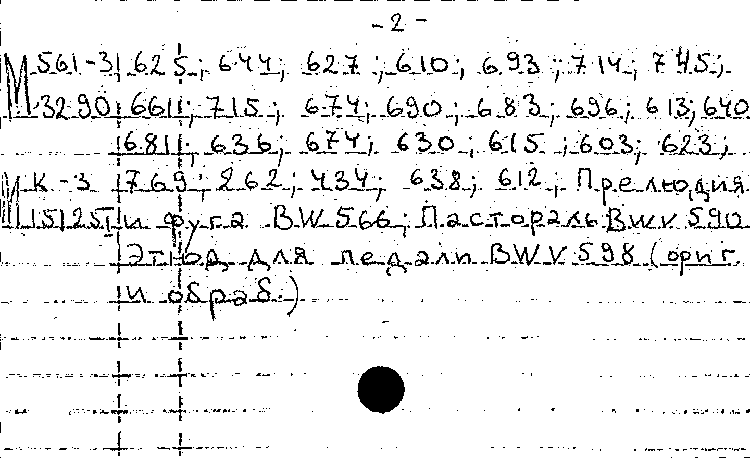 - 2 -
М 561-3 625; 644; 627; 610; 693; 714; 745;
3290 661; 715; 674; 690; 683; 696; 613; 640
681; 636; 674; 630; 615; 603; 623;
М К-3 769; 262; 434; 638; 612, Прелюдия
15125I и фуга BW 566; Пастораль BWV 590
Этюд для педали BWV 598 (ориг.
и обраб.)